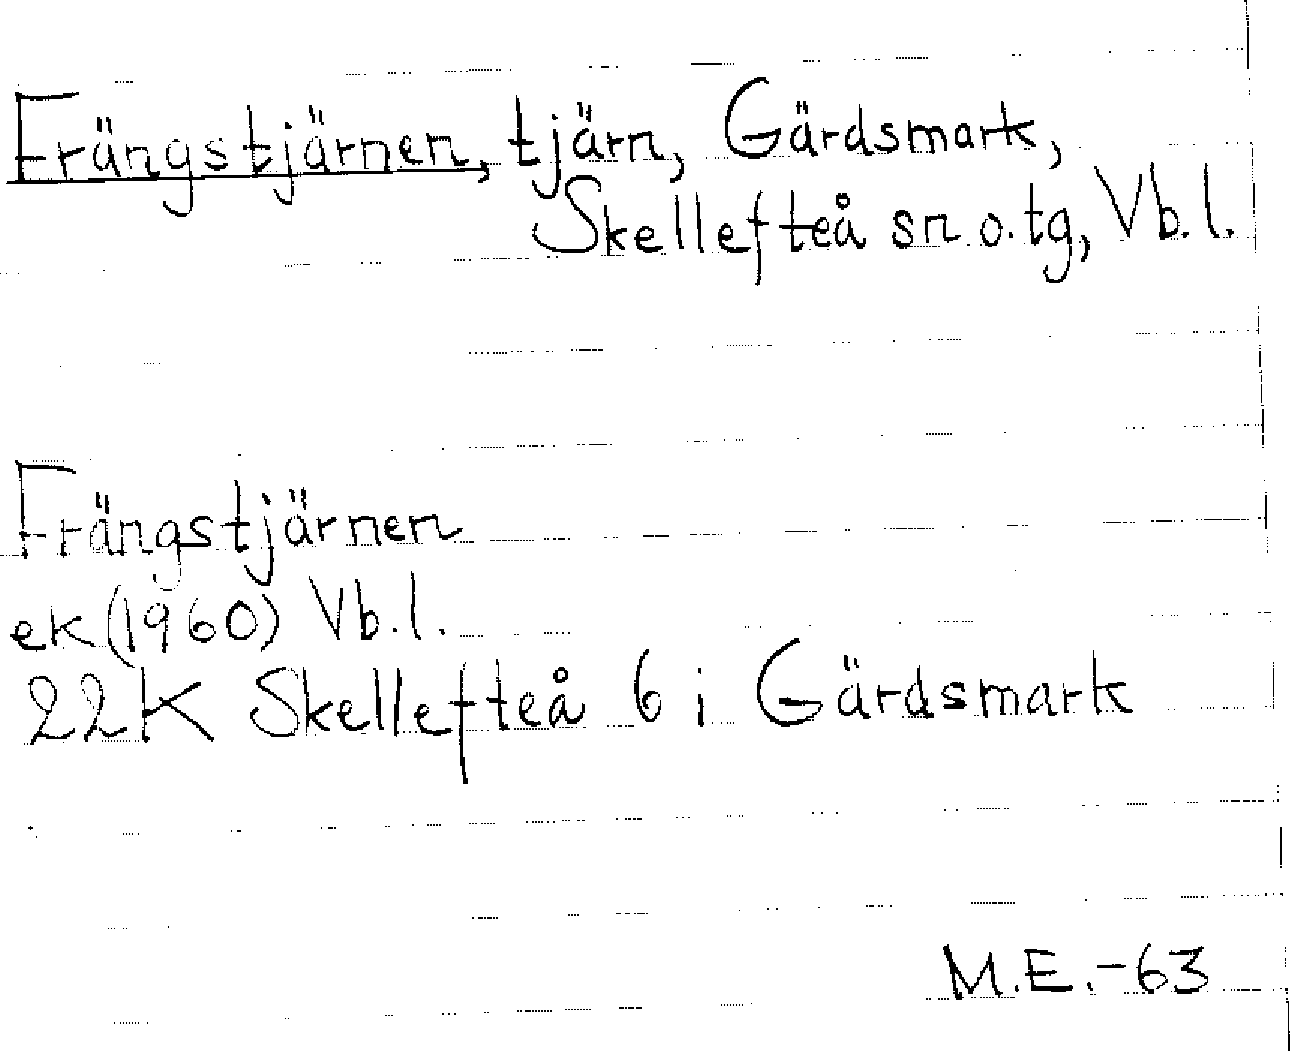 Frängstjärnen, tjärn, Gärdsmark,
Skellefteå sn. o. tg, Vb. l.
Frängstjärnen
ek (1960) Vb. l.
22K Skellefteå 6 i Gärdsmark
M.E. -63